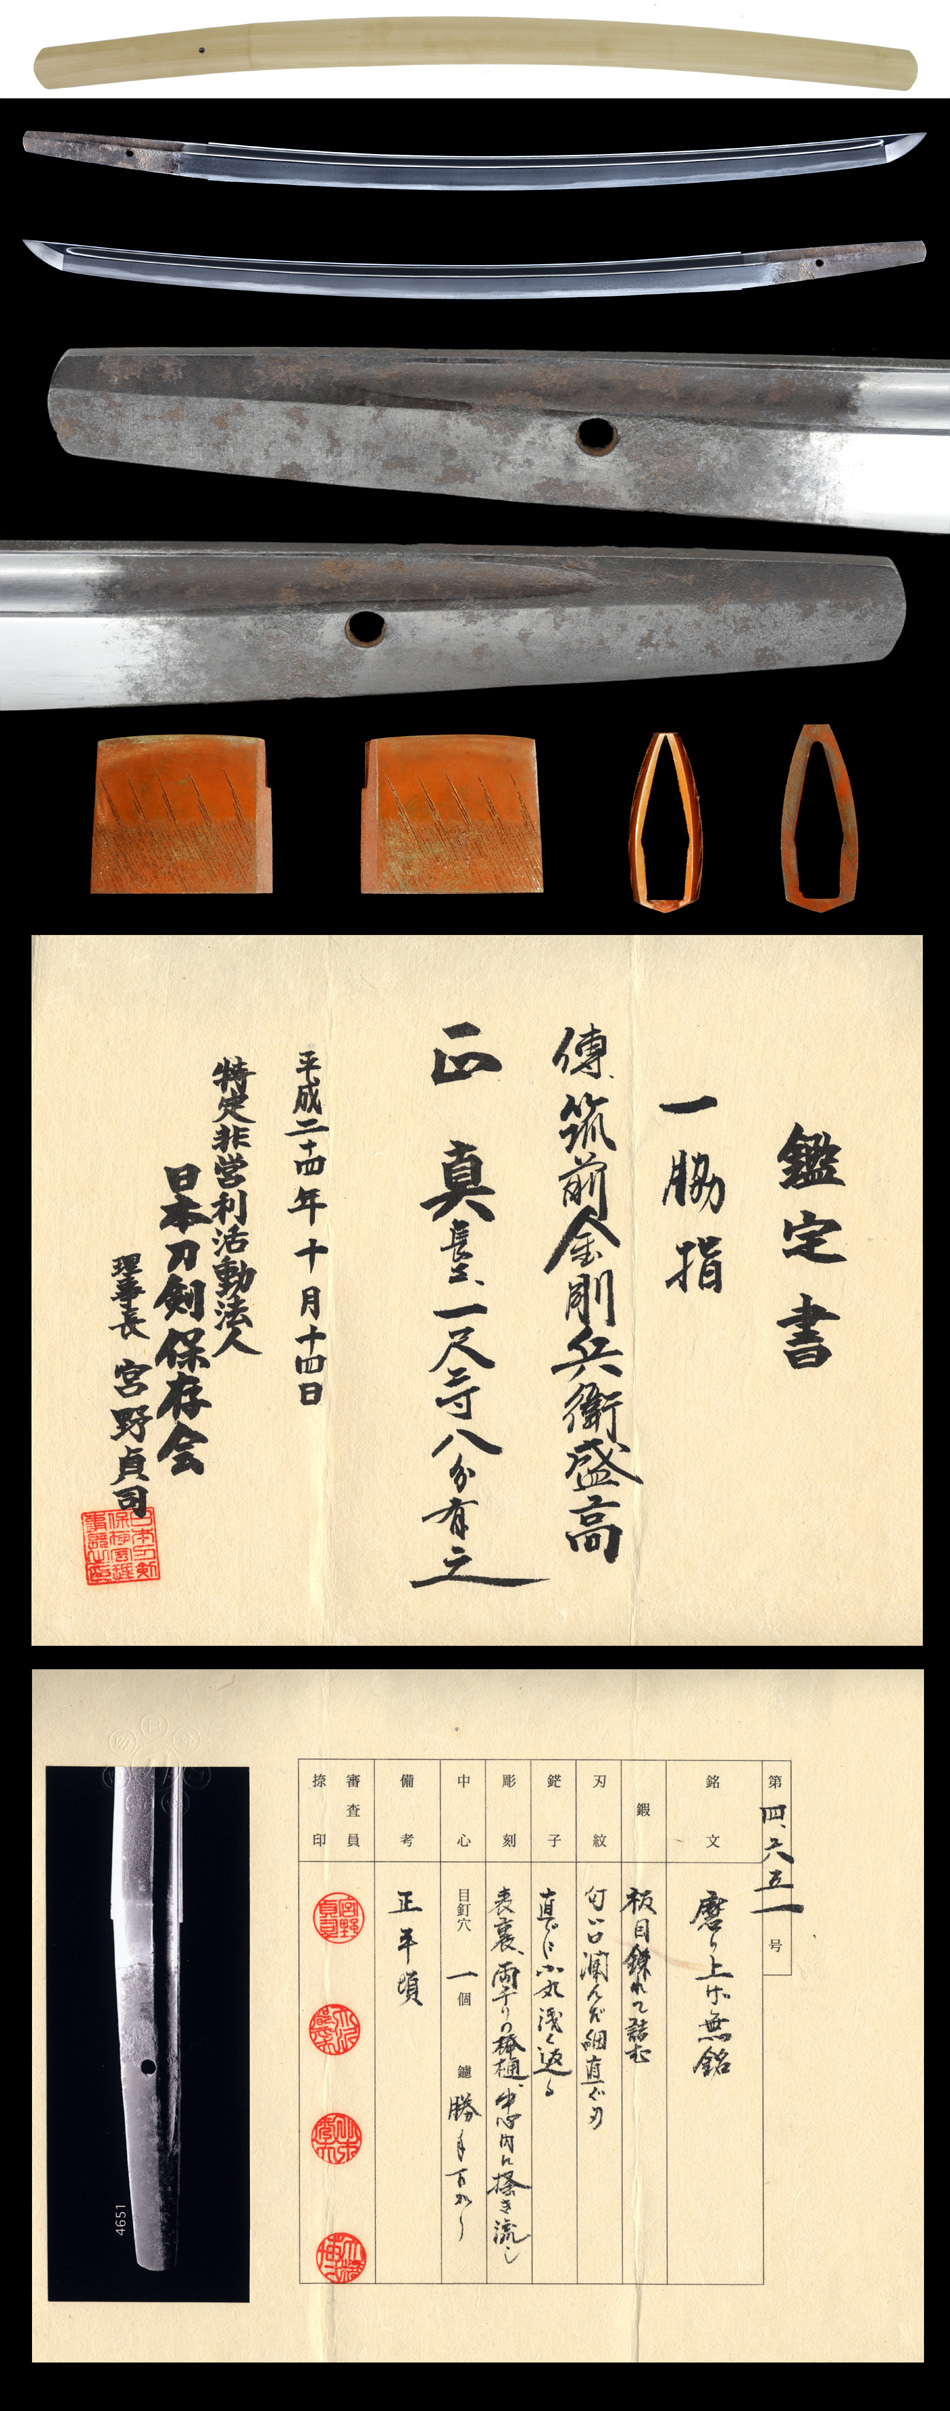 鑑定書
一 脇指
傳 筑前金剛兵衛盛高
正 真 長さ、一尺二寸八分有之
平成二十四年十月十四日
特定非営利活動法人
日本刀剣保存会
理事長 宮野貞司
第四、六五一号
銘文 磨り上げ無銘
鍜 板目鍊れて詰む
刃紋 匂い口潤んだ細直ぐ刃
鋩子 直ぐに小丸浅く返る
彫刻 表裏、両チリの棒樋、中心内に掻き流し
中心 目釘穴 一個 鑢 勝手下がり
備考 正平頃
審査員
捺印
宮野貞司
4651